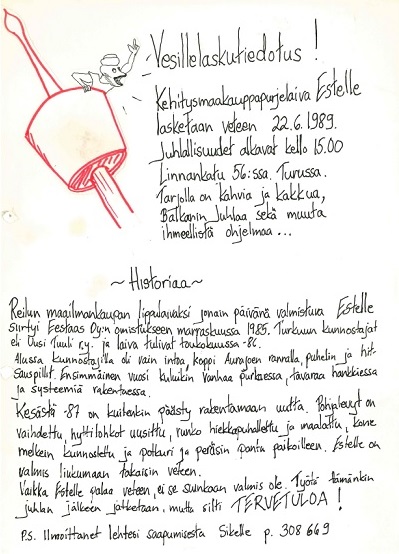 Vesillelaskutiedotus!
Kehitysmaakauppapurjelaiva Estelle
lasketaan veteen 22.6.1989.
Juhlallisuudet alkavat kello 15.00
Linnankatu 56:ssa. Turussa.
Tarjolla on kahvia ja kakkua,
Balkanin Juhlaa sekä muuta
ihmeellistä ohjelmaa...
~Historiaa~
Reilun maailmankaupan lippulaivaksi jonain päivänä valmistuva Estelle
siirtyi Eestaas Oy:n omistukseen marraskuussa 1985. Turkuun kunnostajat
eli Uusi Tuuli r.y. ja laiva tulivat toukokuussa -86.
Alussa kunnostajilla oli vain intoa, koppi Aurajoen rannalla, puhelin ja hit-
sauspillit. Ensimmäinen vuosi kuluikin vanhaa purkaessa, tavaraa hankkiessa
ja systeemiä rakentaessa.
Kesästä -87 on kuitenkin päästy rakentamaan uutta. Pohjalevyt on
vaihdettu, hyttilohkot uusittu, runko hiekkapuhallettu ja maalattu, kone
melkein kunnostettu ja potkuri ja peräsin pantu paikoilleen. Estelle on
valmis liukumaan takaisin veteen.
Vaikka Estelle palaa veteen, ei se suinkaan valmis ole. Työtä tämänkin
juhlan jälkeen jatketaan, mutta silti TERVETULOA!
P.S. Ilmoittanet lehtesi saapumisesta Sikelle p. 308 669